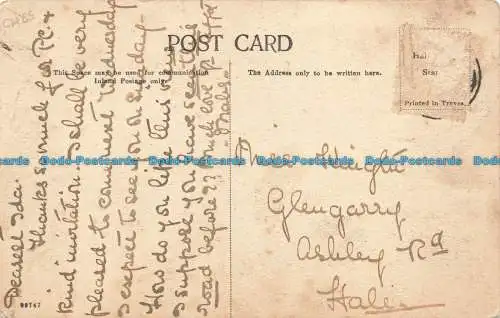 POST CARD
This Space may be used for communication
Inland Postage only.
The Address only to be written here.
Printed in
Dearest Ida.
Thanks so much for P.C. &
kind invitation. I shall be very
pleased to come next Wednesday
I expect to see you on Sunday.
How do you like this view
I suppose you have seen this
road before ?? Much love fr
Mabs
Miss Knight
Glengarry
Ashley Rd
Hale
99747
Dodo-Postcards Dodo-Postcards Dodo-Postcards Dodo-Postcards Dodo-Postcards